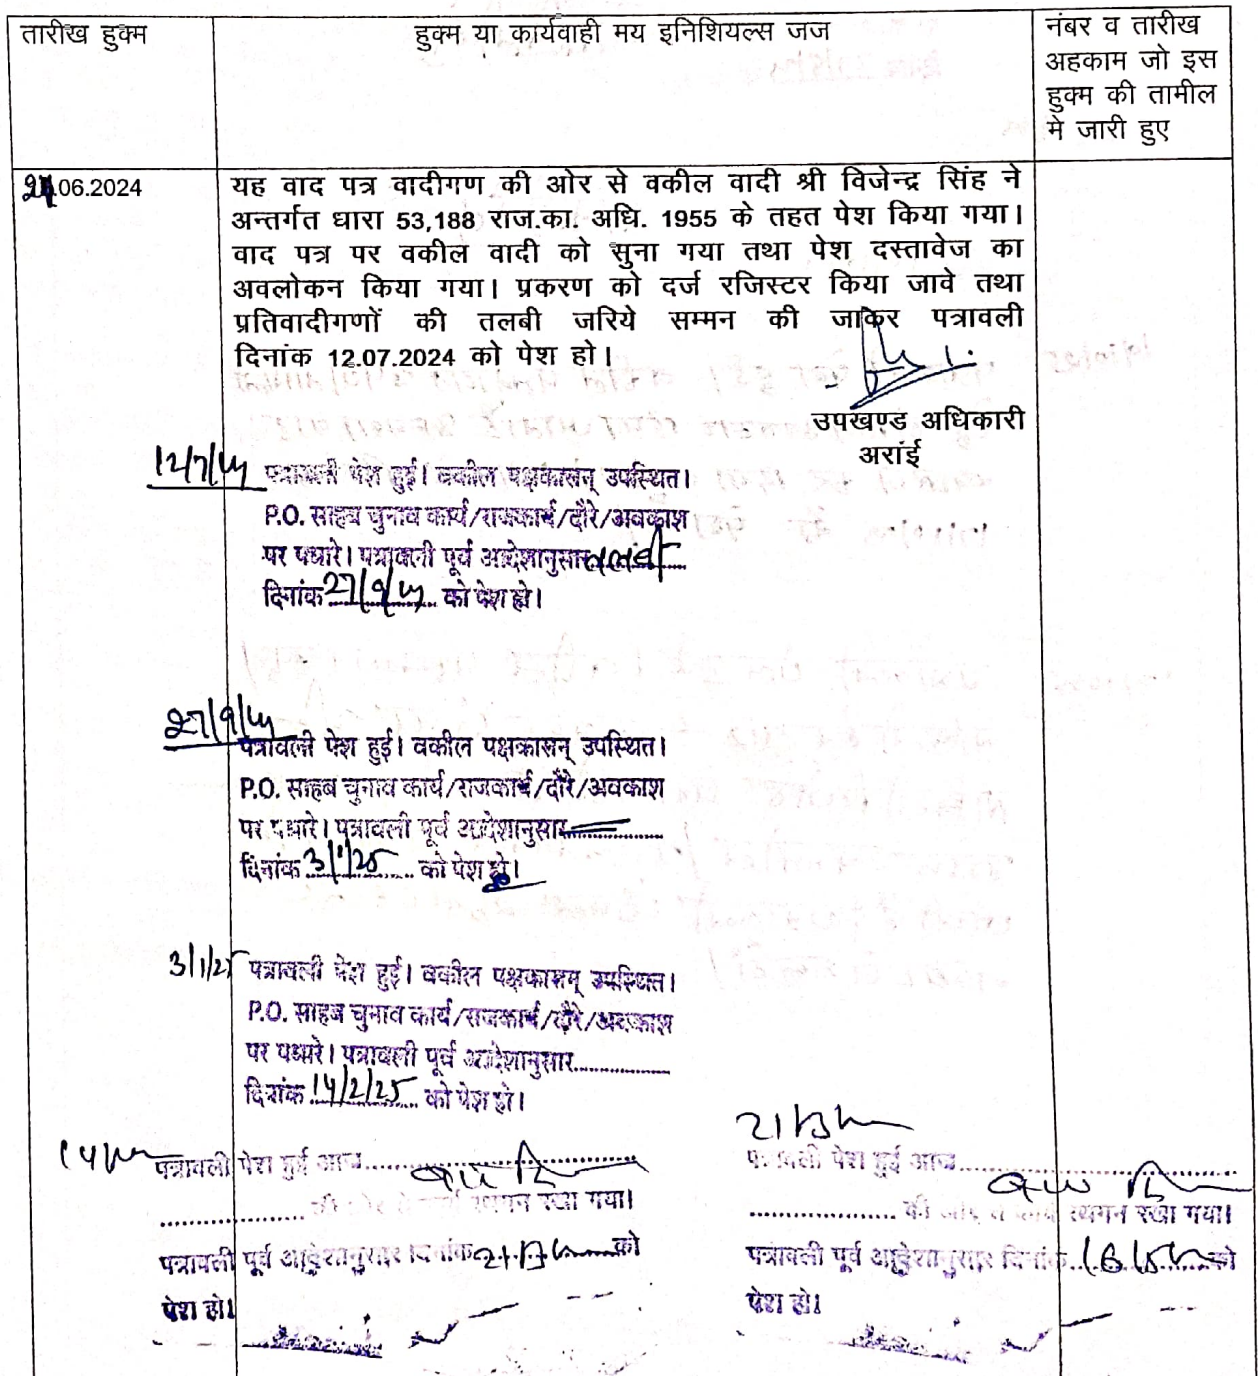 तारीख हुक्म
हुक्म या कार्यवाही मय इनिशियल्स जज
नंबर व तारीख
अहकाम जो इस
हुक्म की तामील
मे जारी हुए
.06.2024
यह वाद पत्र वादीगण की ओर से वकील वादी श्री विजेन्द्र सिंह ने
अन्तर्गत धारा 53,188 राज.का. अधि. 1955 के तहत पेश किया गया।
वाद पत्र पर वकील वादी को सुना गया तथा पेश दस्तावेज का
अवलोकन किया गया। प्रकरण को दर्ज रजिस्टर किया जावे तथा
प्रतिवादीगणों की तलबी जरिये सम्मन की जाकर पत्रावली
दिनांक 12.07.2024 को पेश हो।
उपखण्ड अधिकारी
अरांई
12/7/24 पत्रावली पेश हुई। वकील पक्षकासन् उपस्थित।
P.O. साहब चुनाव कार्य/राजकार्य/दौरे/अवकाश
पर पधारे। पत्रावली पूर्व आदेशानुसार तलबी
दिनांक 27/9/24 को पेश हो।
27/9/24
पत्रावली पेश हुई। वकील पक्षकासन् उपस्थित।
P.O. साहब चुनाव कार्य/राजकार्य/दौरे/अवकाश
पर पधारे। पत्रावली पूर्व आदेशानुसार..........
दिनांक 3/1/25 को पेश हो।
3/1/25 पत्रावली पेश हुई। वकील पक्षकासन् उपस्थित।
P.O. साहब चुनाव कार्य/राजकार्य/दौरे/अवकाश
पर पधारे। पत्रावली पूर्व आदेशानुसार..........
दिनांक 14/2/25 को पेश हो।
पत्रावली पेश हुई आज
की ओर से कार्य स्थगन रखा गया।
पत्रावली पूर्व आदेशानुसार दिनांक को
पेश हो।
पत्रावली पेश हुई आज
की ओर से कार्य स्थगन रखा गया।
पत्रावली पूर्व आदेशानुसार दिनांक को
पेश हो।